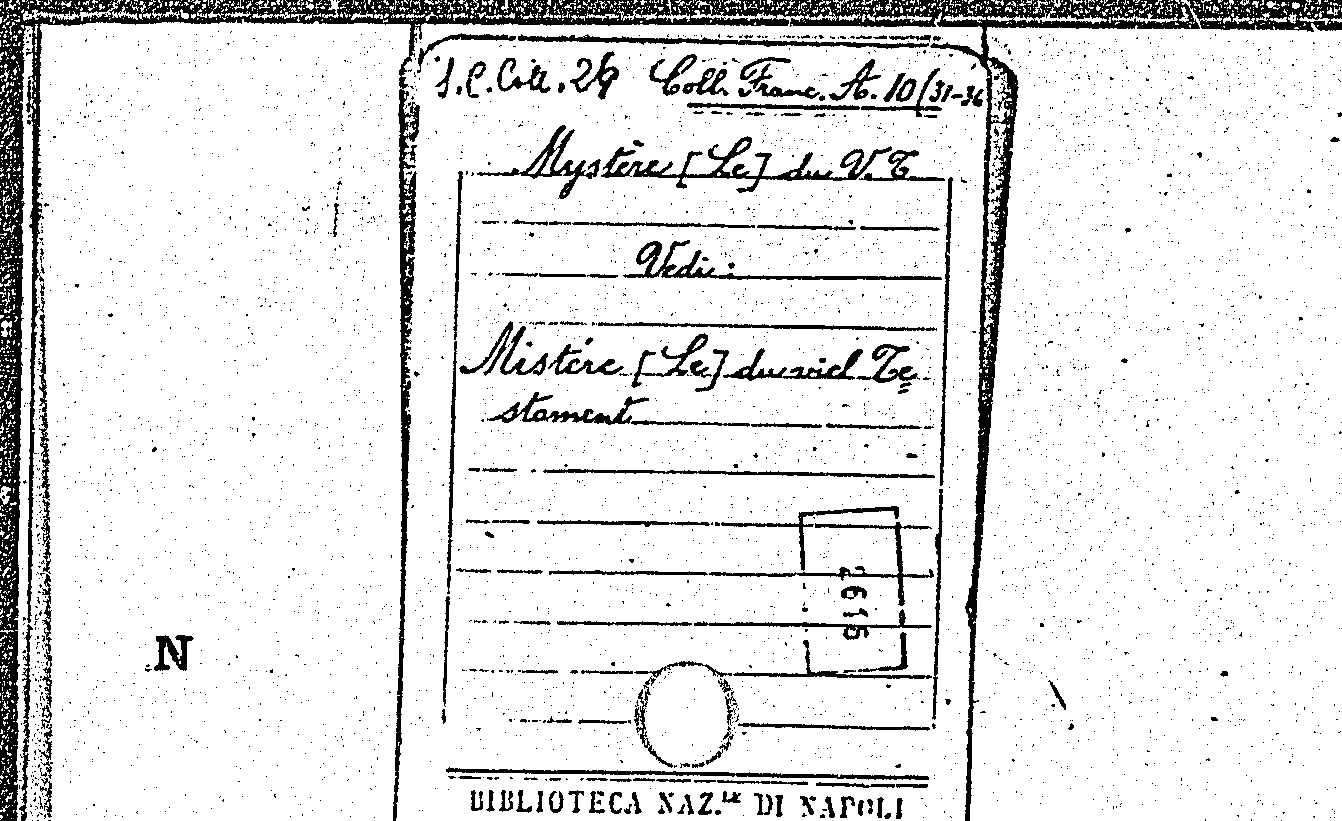 S.C. Coll. 2/9 Coll. Franc. A. 10/31-36
Mystère [Le] du V.T.
Vedi:
Mistére [Le] du viel Te
stament
2615
N
BIBLIOTECA NAZ.LE DI NAPOLI